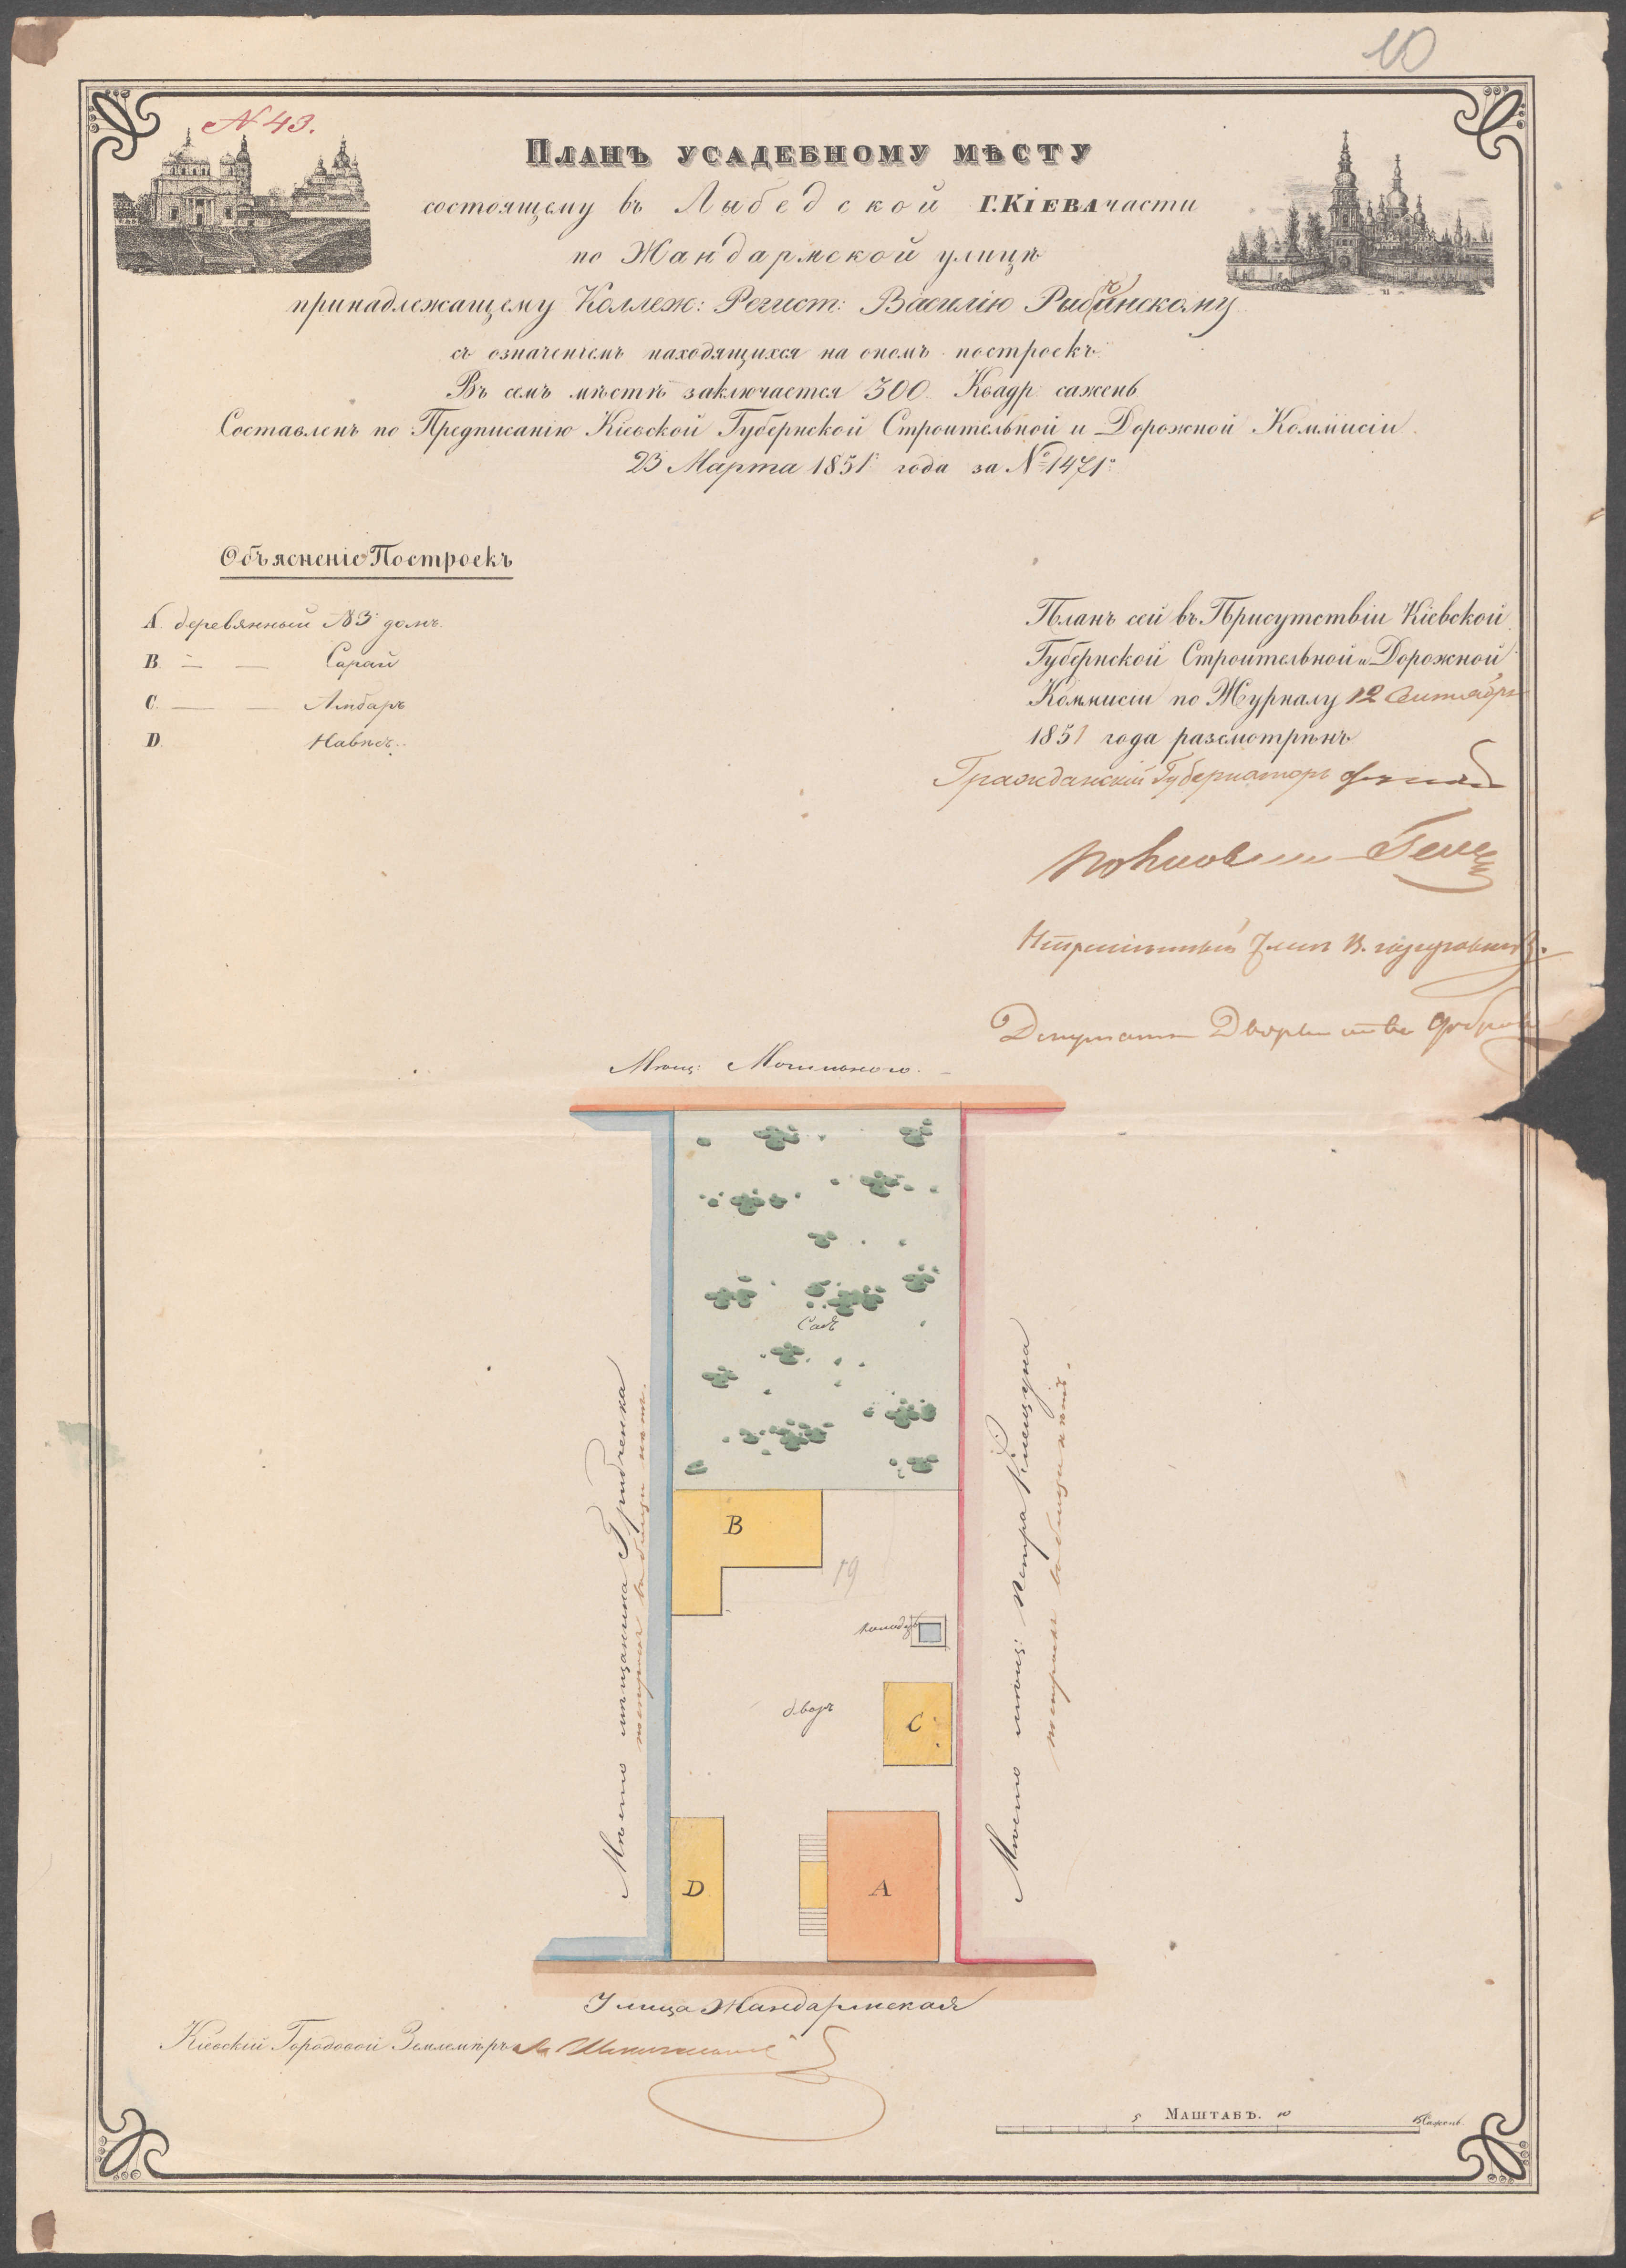 10
N 43.
Планъ усадебному мѣсту
состоящему въ Лыбедской Г. Кіева части
по Жандармской улицѣ
принадлежащему Коллеж: Регист: Василію
съ означеніемъ находящихся на ономъ построекъ.
Въ семъ мѣстѣ заключается 300 Квадр: сажень
Составленъ по Предписанію Кіевской Губернской Строительной и Дорожной Коммисіи
23 Марта 1851 года за № 1471
Объясненіе Построекъ
A. деревянный №3 домъ.
B. — — Сарай
C. — — Амбаръ
D. Навѣсъ.
Планъ сей въ Присутствіи Кіевской
Губернской Строительной и Дорожной
Коммисіи по Журналу 12 Сентября
1851 года разсмотрѣнъ
Гражданскій Губернаторъ
Членъ
Депутатъ Дворянства
Мѣщ: Могильного.
Садъ
B
19
колодезь
дворъ
C
D
A
Мѣсто мѣщанина Гридченка
Мѣсто мѣщ: Петра
Улица Жандармская
Кіевскій Городовой Землемѣръ
Маштабъ.
5 10 15 Сажень.